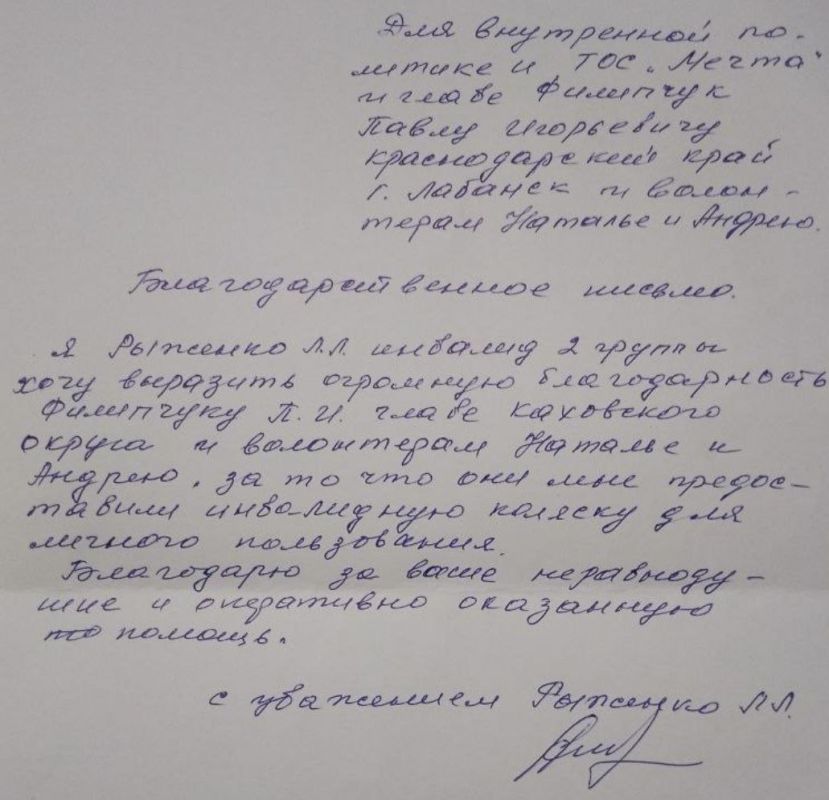 Для внутренной по-
литике и ТОС „Мечта"
и главе Филипчук
Павлу Игорьевичу
краснодарский край
г. Лабанск и волон-
терам Наталье и Андрею.
Благодарственное письмо.
Я Рыженко Л.Л. инвалид 2 группы
хочу выразить огромную благодарность
Филипчуку П.И. главе Каховского
округа и волонтерам Наталье и
Андрею, за то что они мне предос-
тавили инвалидную коляску для
личного пользования.
Благодарю за ваше неравноду-
шие и оперативно оказанную
помощь.
с уважением Рыженко Л.Л.